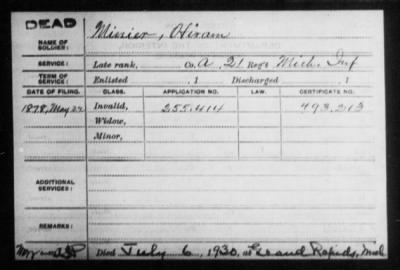 DEAD
NAME OF SOLDIER: Minier, Hiram
SERVICE: Late rank, Co. A, 21 Reg't Mich. Inf
TERM OF SERVICE: Enlisted , 1 Discharged , 1
DATE OF FILING. CLASS. APPLICATION NO. LAW. CERTIFICATE NO.
1878, May 22 Invalid, 255.414 493.213
Widow,
Minor,
ADDITIONAL SERVICES:
REMARKS:
Died July 6, 1930, at Grand Rapids, Mich